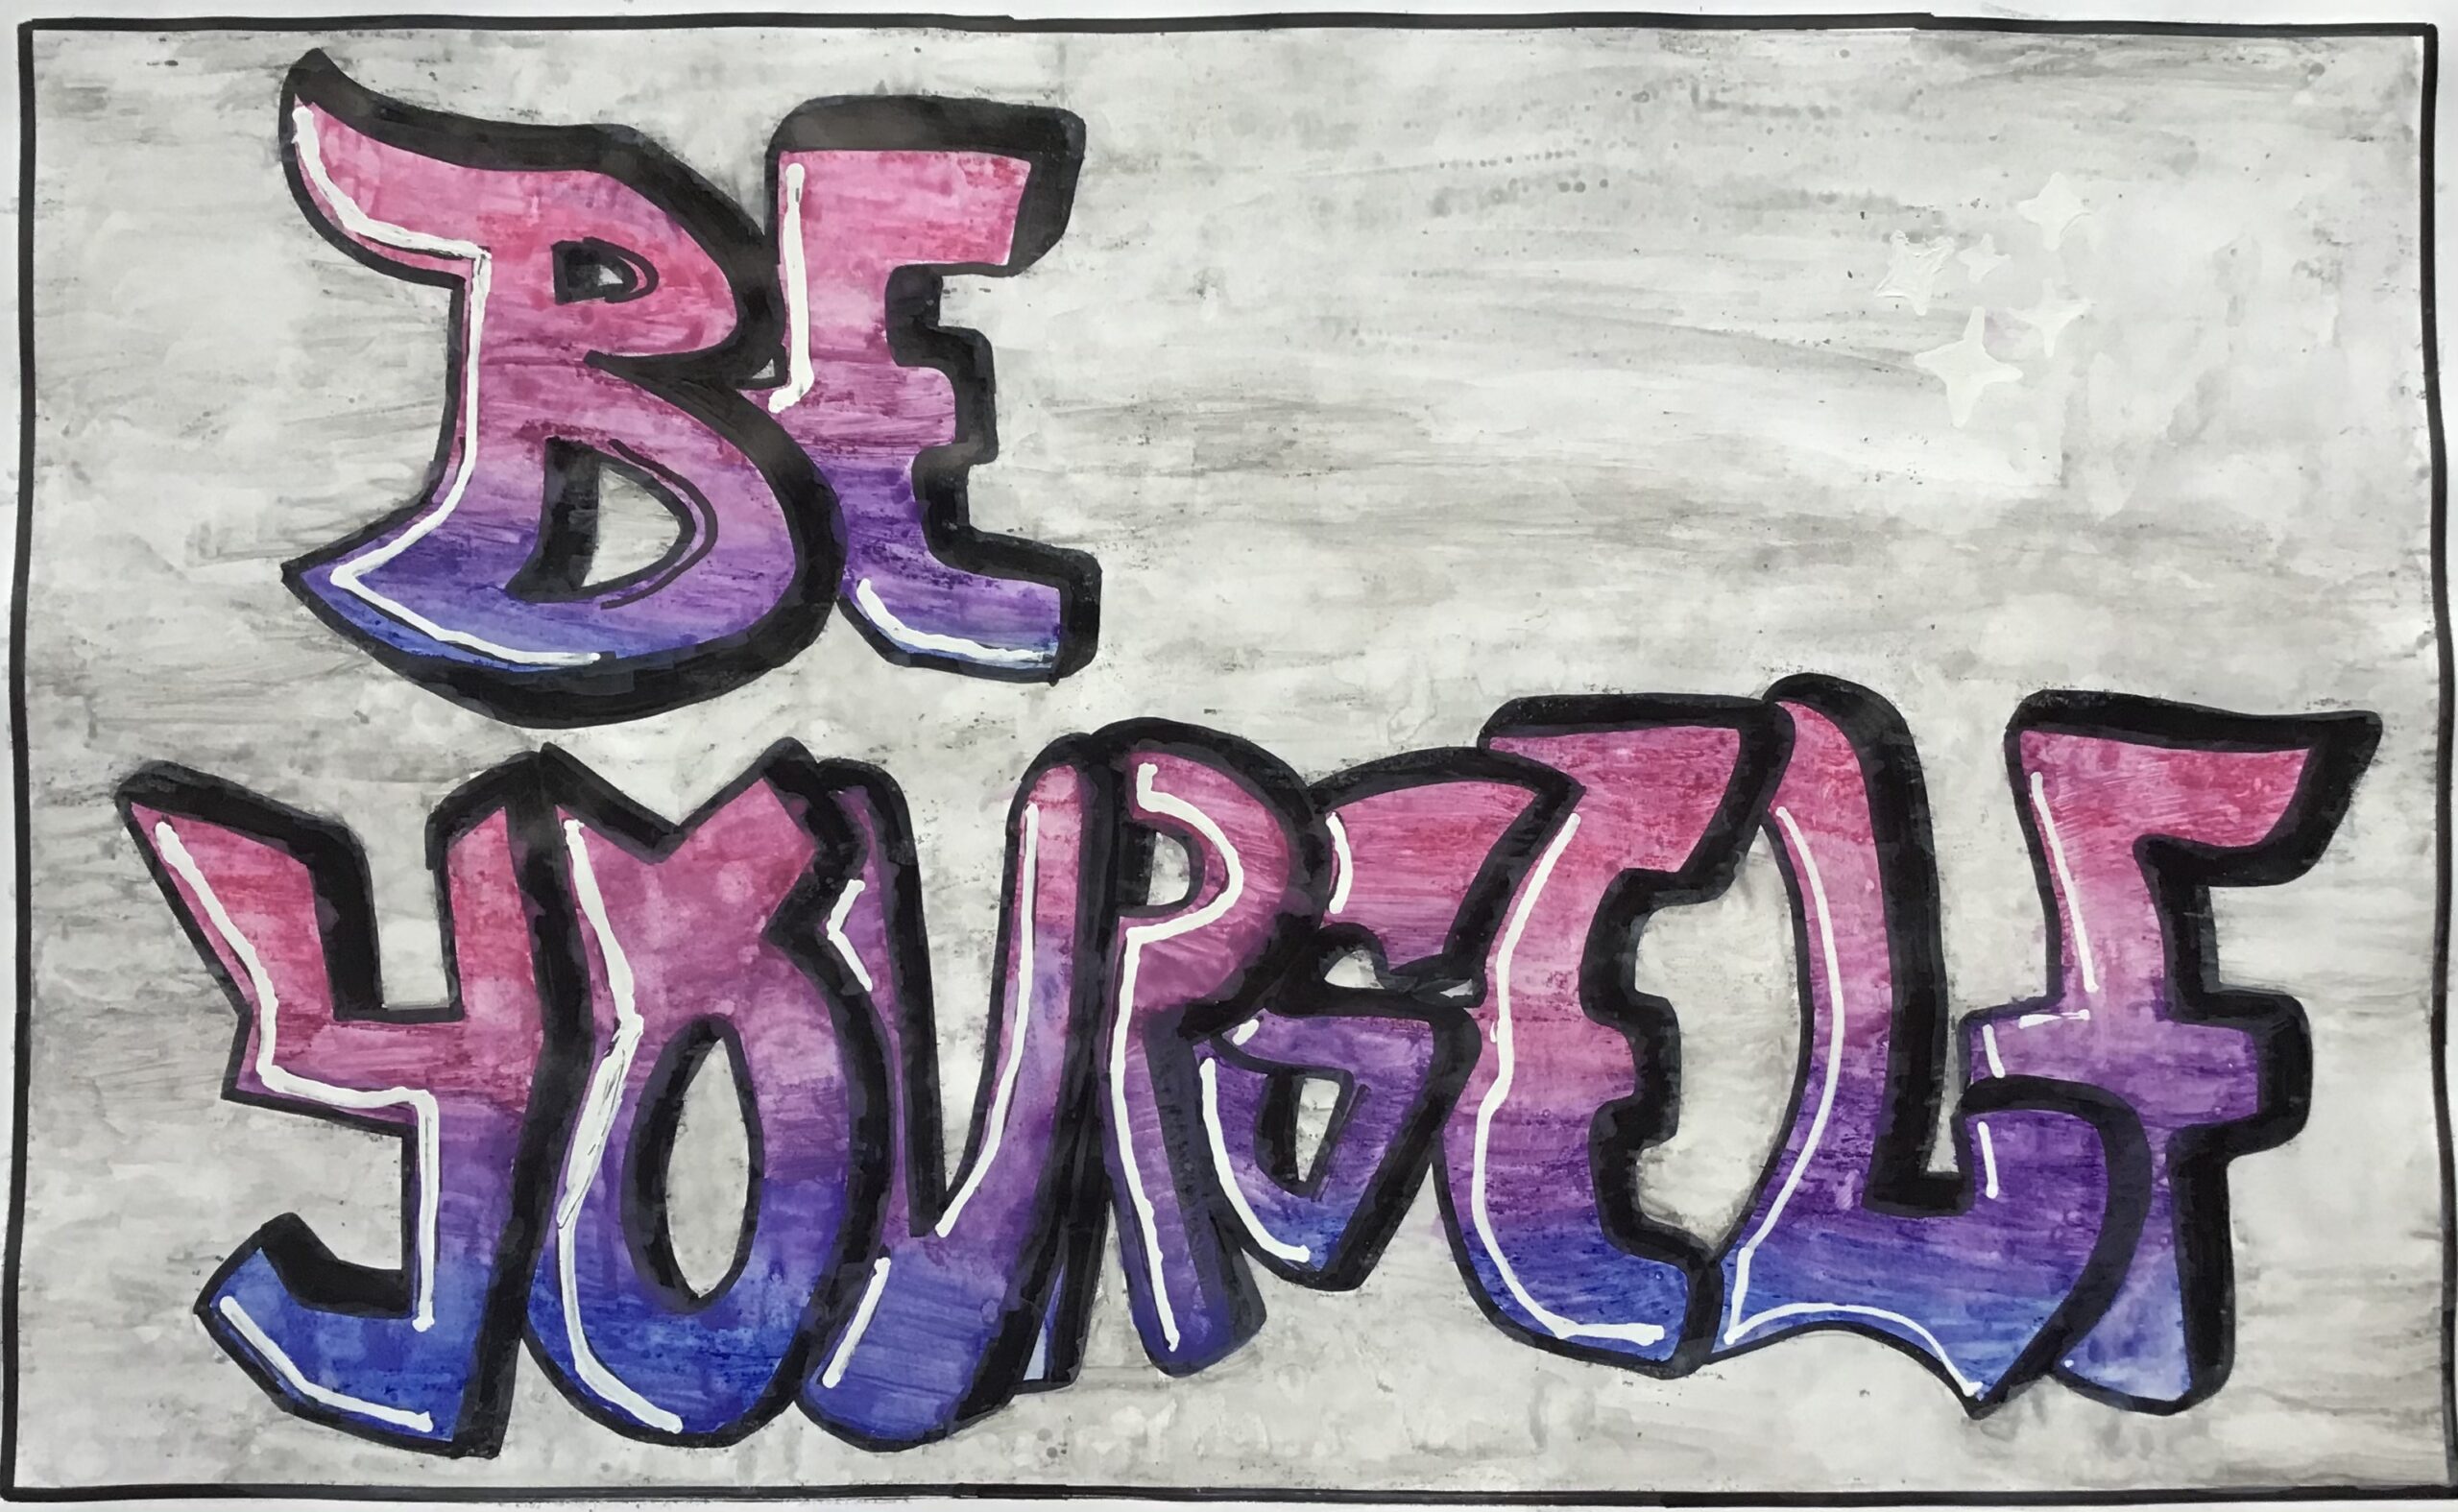 BE
YOURSELF